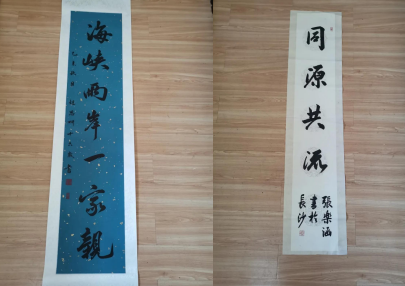 海峡两岸一家親
同源共流
張樂涵
書於
長沙